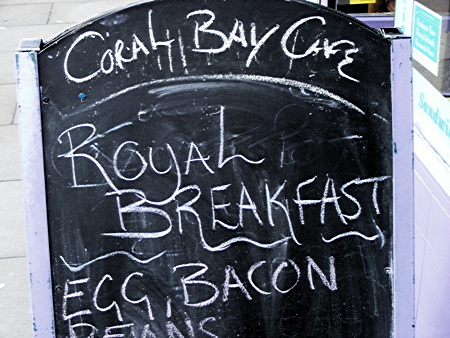 CORAL BAY CAFE
ROYAL
BREAKFAST
EGG, BACON
BEANS
Sandwi